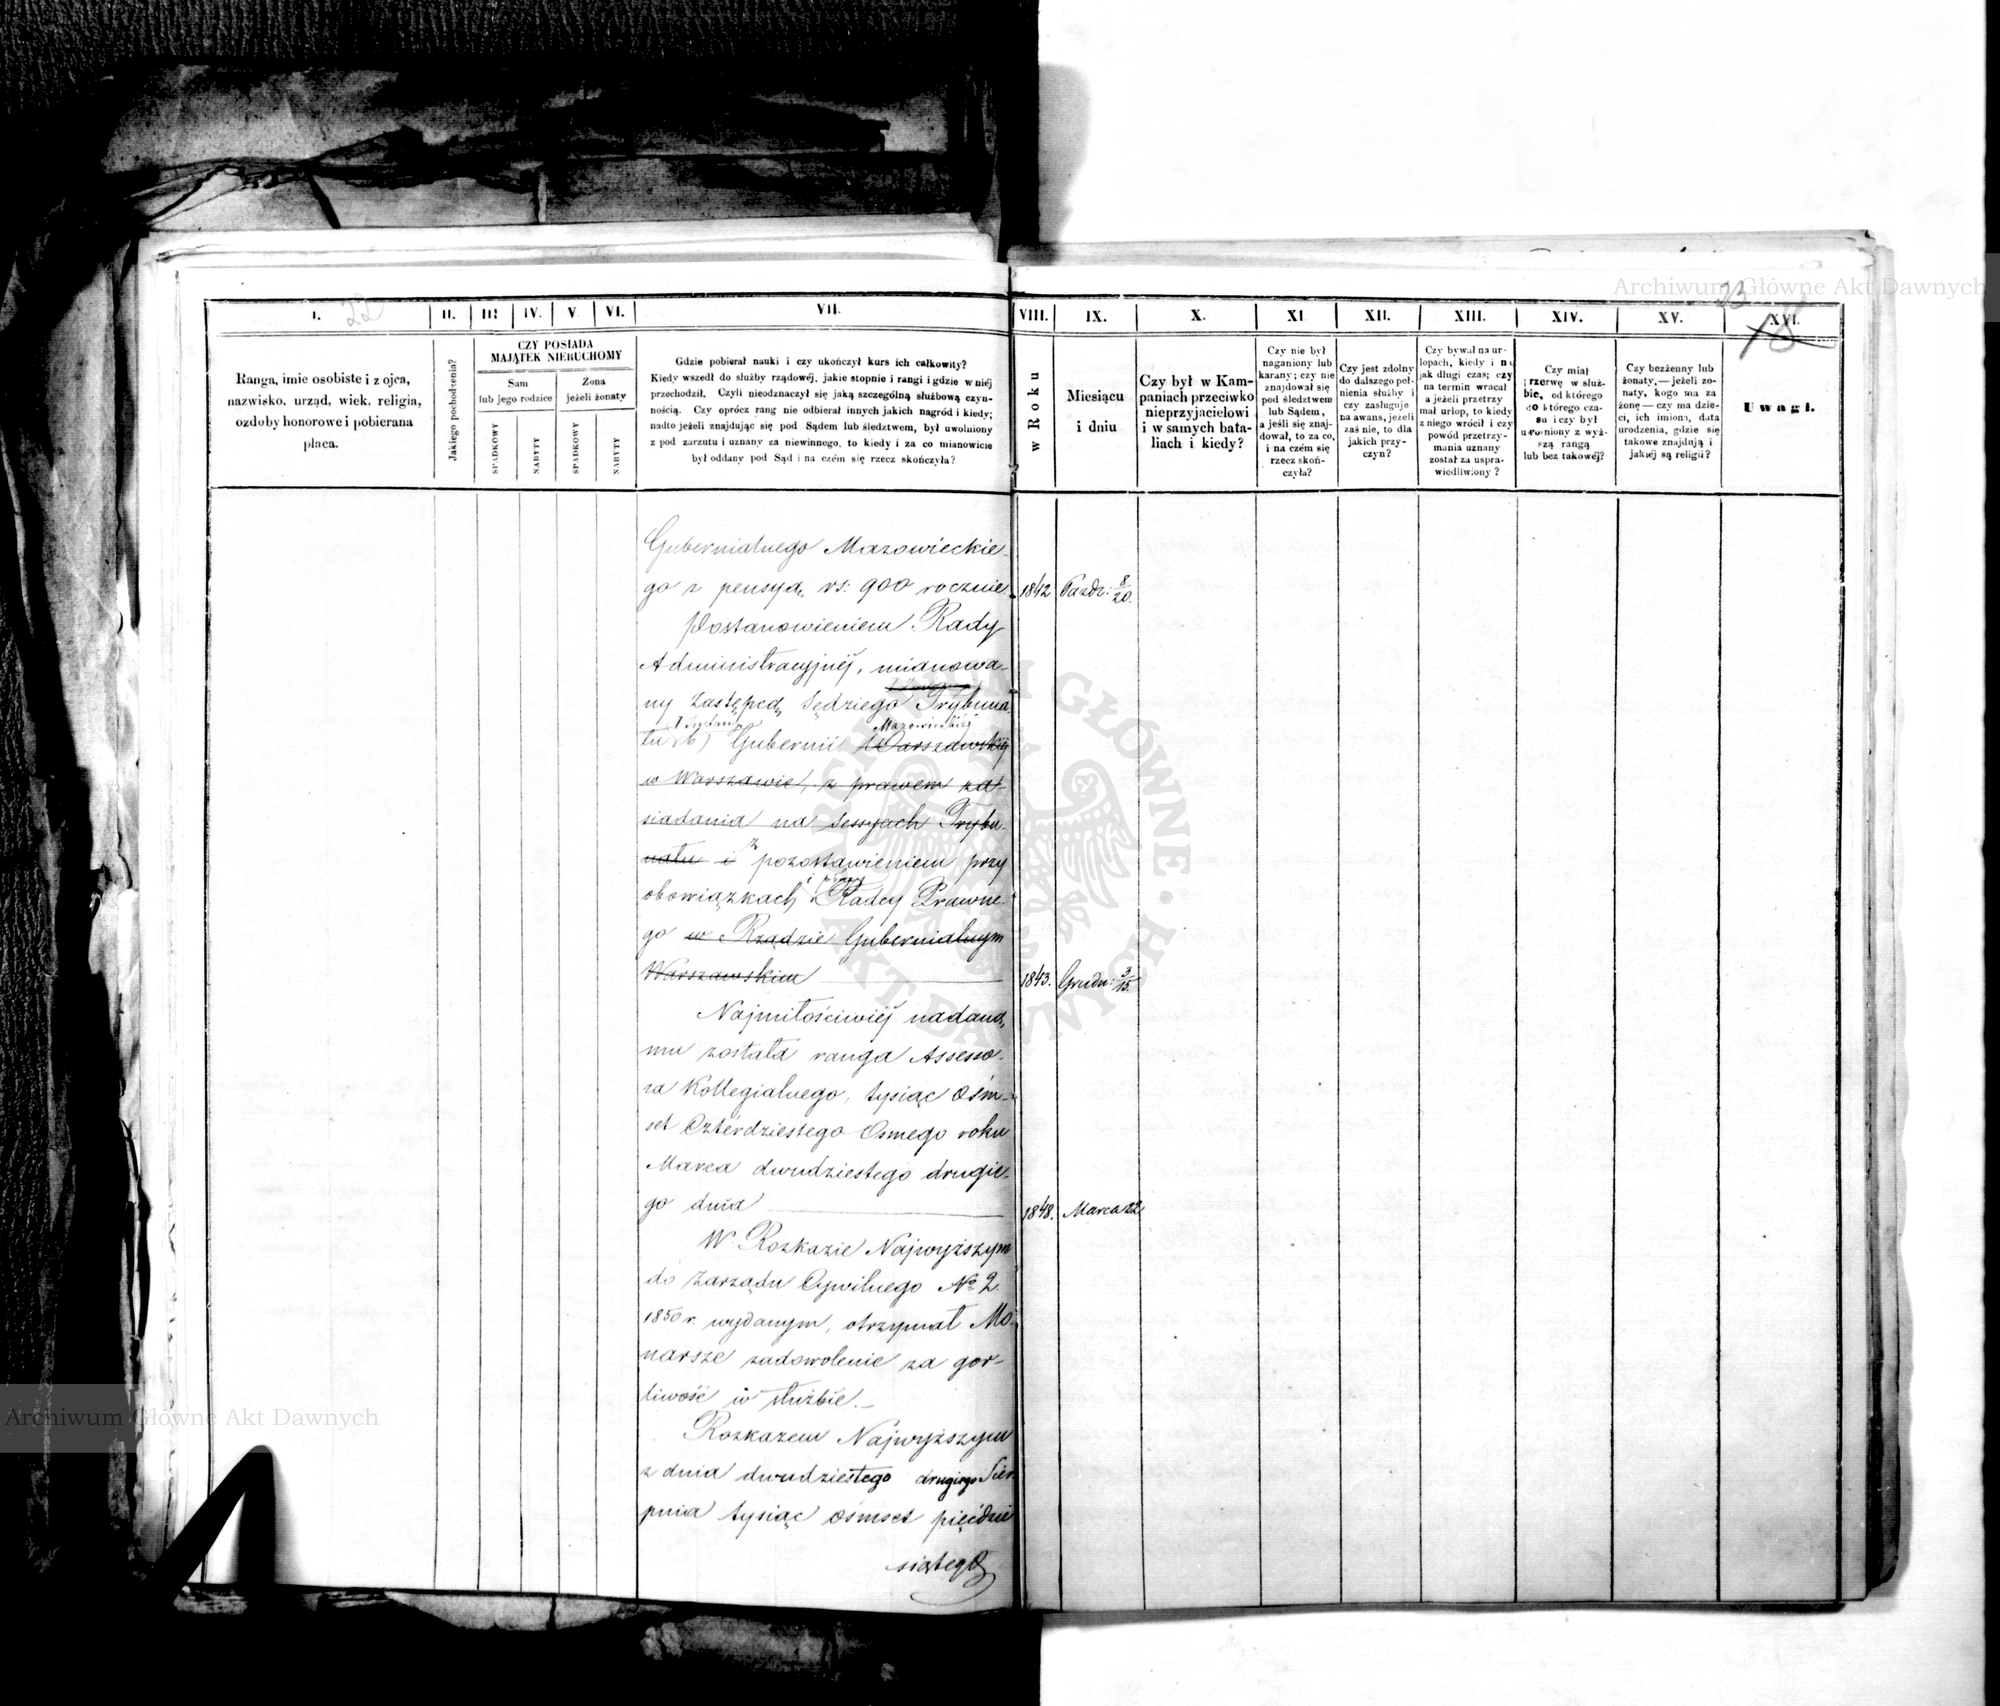 Archiwum Główne Akt Dawnych
22
23
18
I.
II.
III
IV.
V.
VI.
VII.
VIII.
IX.
X.
XI.
XII.
XIII.
XIV.
XV.
XVI.
Ranga, imie osobiste i z ojca,
nazwisko, urząd, wiek, religia,
ozdoby honorowe i pobierana
płaca.
Jakiego pochodzenia?
CZY POSIADA
MAJĄTEK NIERUCHOMY
Sam
lub jego rodzice
Żona
jeżeli żonaty
SPADKOWY
NABYTY
SPADKOWY
NABYTY
Gdzie pobierał nauki i czy ukończył kurs ich całkowity?
Kiedy wszedł do służby rządowéj, jakie stopnie i rangi i gdzie w niéj
przechodził. Czyli nieodznaczył się jaką szczególną służbową czyn-
nością. Czy oprócz rang nie odbierał innych jakich nagród i kiedy;
nadto jeżeli znajdując się pod Sądem lub śledztwem, był uwolniony
z pod zarzutu i uznany za niewinnego, to kiedy i za co mianowicie
był oddany pod Sąd i na czém się rzecz skończyła?
w Roku
Miesiącu
i dniu
Czy był w Kam-
paniach przeciwko
nieprzyjacielowi
i w samych bata-
liach i kiedy?
Czy nie był
naganiony lub
karany; czy nie
znajdował się
pod śledztwem
lub Sądem,
a jeśli się znaj-
dował, to za co,
i na czém się
rzecz skoń-
czyła?
Czy jest zdolny
do dalszego peł-
nienia służby i
czy zasługuje
na awans, jeżeli
zaś nie, to dla
jakich przy-
czyn?
Czy bywał na ur-
lopach, kiedy i na
jak długi czas; czy
na termin wracał
a jeżeli przetrzy
mał urlop, to kiedy
z niego wrócił i czy
powód przetrzy-
mania uznany
został za uspra-
wiedliwiony?
Czy miał
przerwę w służ-
bie, od którego
do którego cza-
su i czy był
uwolniony z wyż-
szą rangą
lub bez takowéj?
Czy bezżenny lub
żonaty,—jeżeli żo-
naty, kogo ma za
żonę—czy ma dzie-
ci, ich imiona, data
urodzenia, gdzie się
takowe znajdują i
jakiéj są religii?
Uwagi.
Gubernialnego Mazowieckie-
go z pensyą rs: 900 rocznie
1842
Paźdz: 8/20.
Postanowieniem Rady
Administracyjnéj, mianowa-
ny Zastępcą Sędziego Trybuna
łu Gubernii Warszawskiéj
Mazowieckiéj
w Warszawie, z prawem za-
siadania na Sessyach Trybu-
nału i z pozostawieniem przy
obowiązkach Radcy Prawne-
go w Rządzie Gubernialnym
Warszawskim
1843.
Grudn: 3/15.
Najmiłościwiéj nadaną
mu została ranga Assesso-
ra Kollegialnego, tysiąc ośm-
set Czterdziestego Osmego roku
Marca dwudziestego drugie-
go dnia
1848.
Marca 22
W Rozkazie Najwyższym
do Zarządu Cywilnego No 2
1850 r. wydanym, otrzymał Mo-
narsze zadowolenie za gor-
liwość w służbie.—
Rozkazem Najwyższym
z dnia dwudziestego drugiego Sier-
pnia tysiąc ośmset pięćdzie
siątego
ARCHIWUM GŁÓWNE AKT DAWNYCH
Archiwum Główne Akt Dawnych